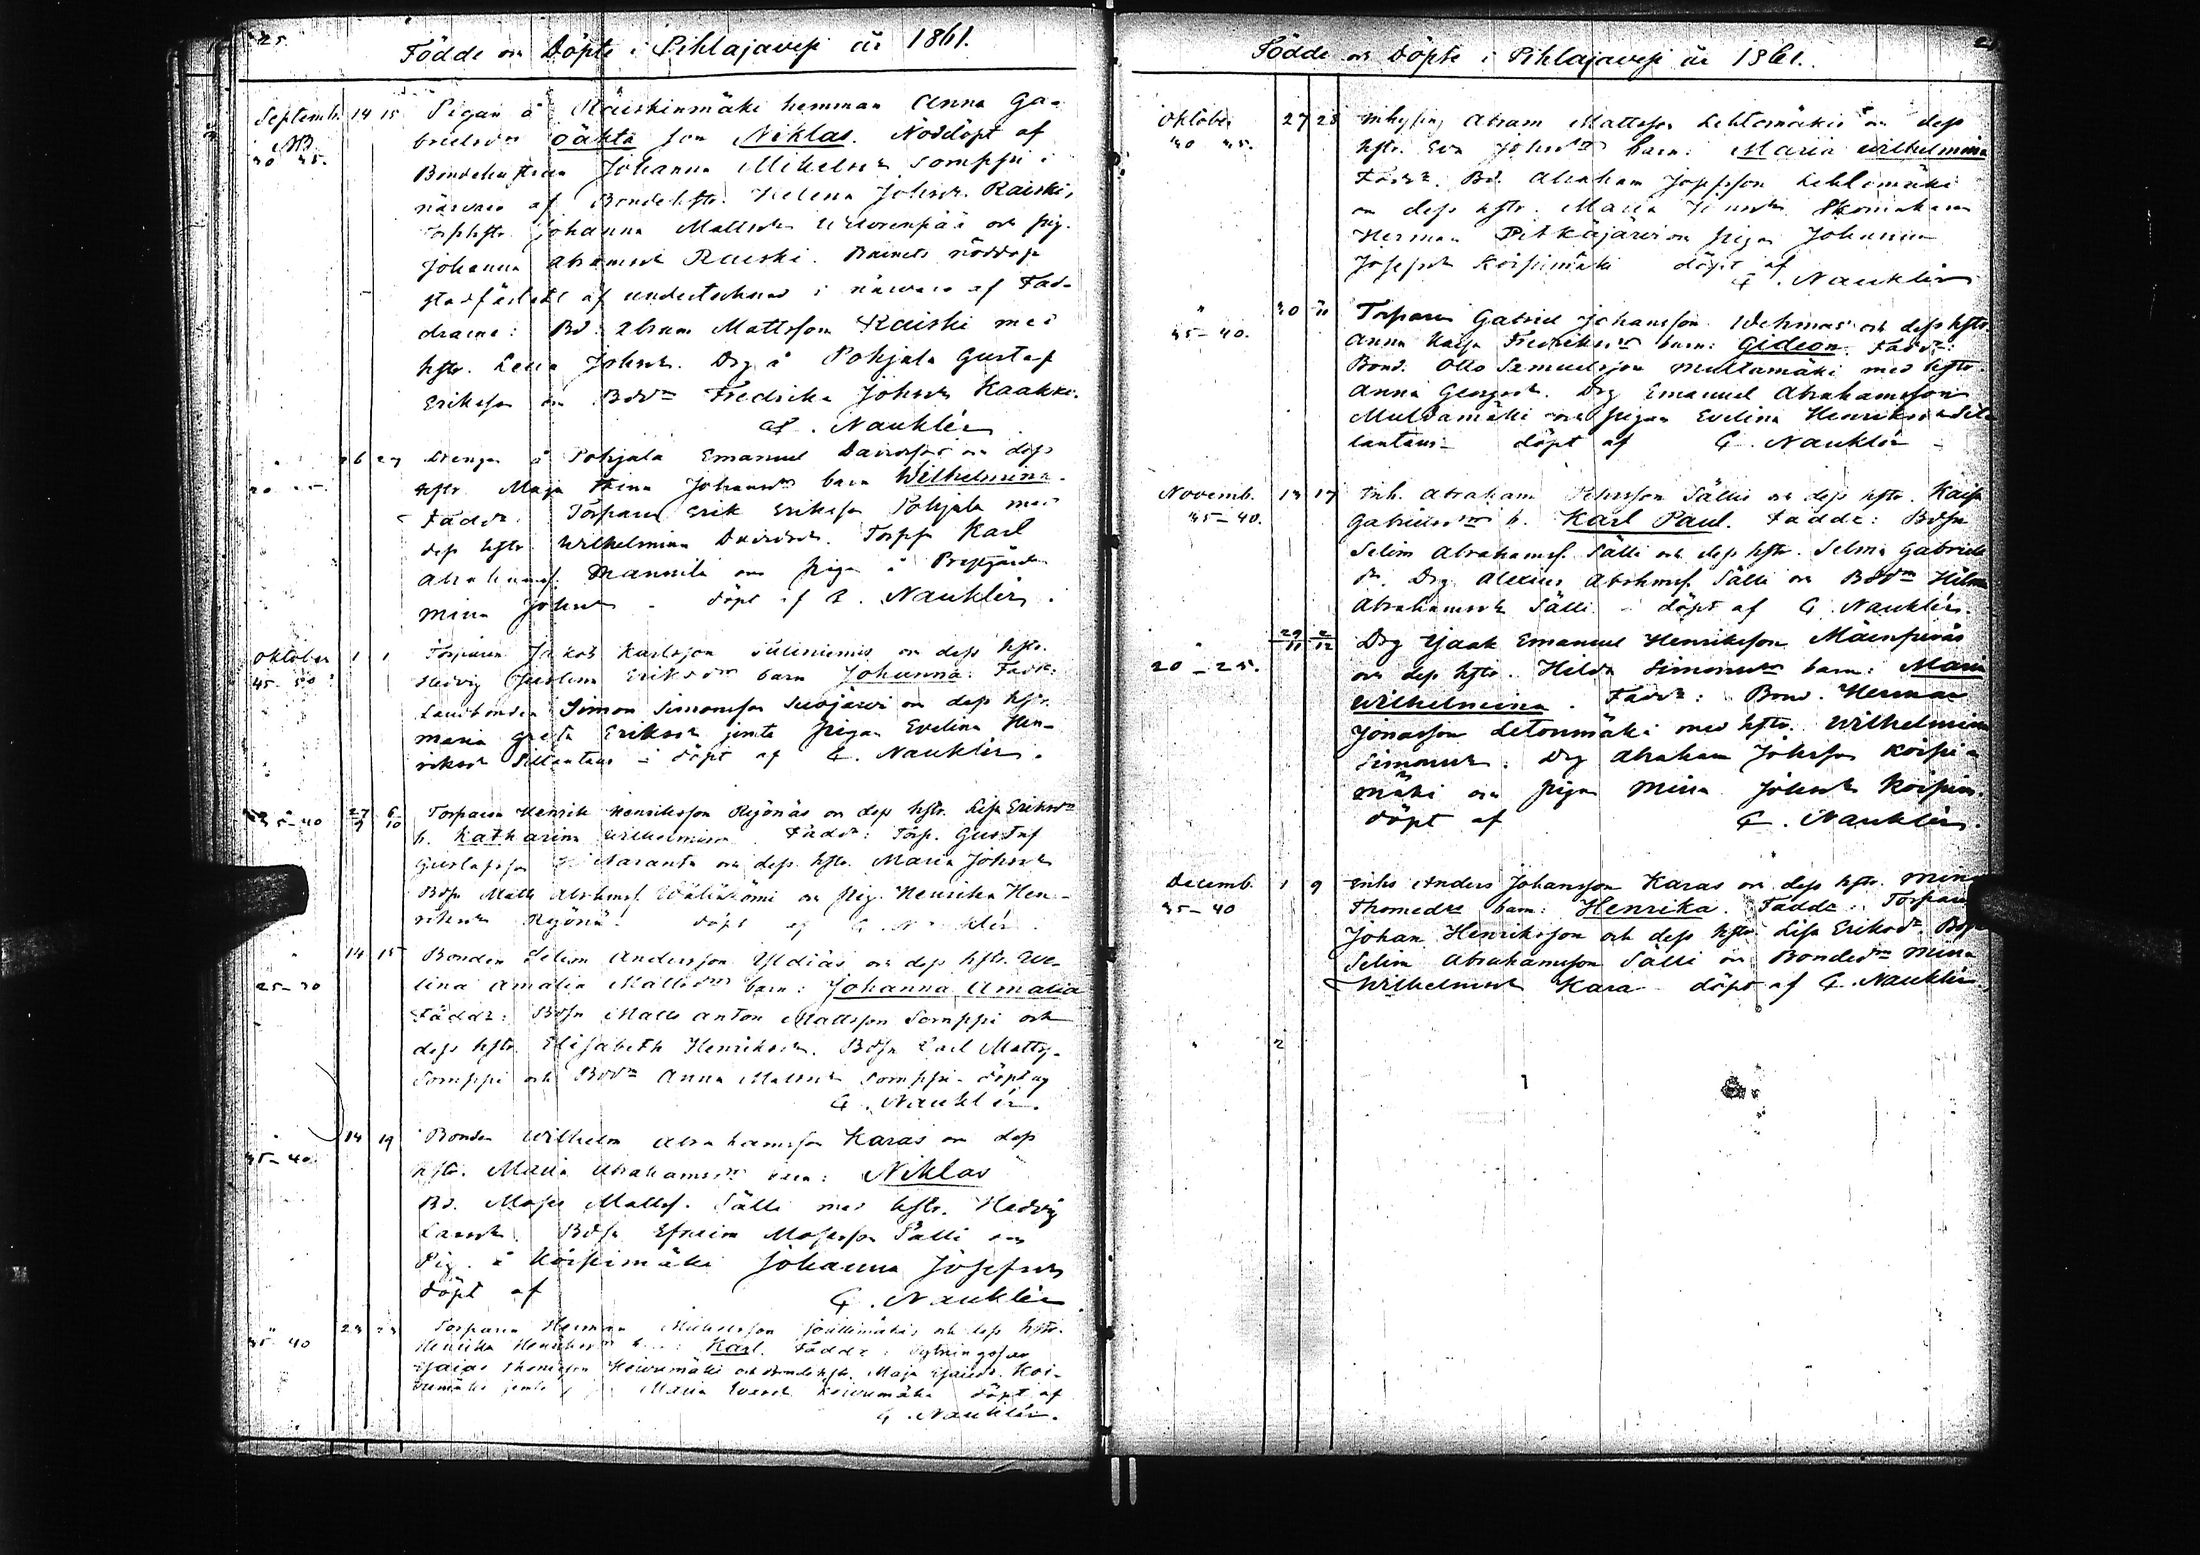 25.
Födde och Döpte i Pihlajavesi år 1861.
Septemb. 14 15 Pigan å Räiskinmäki hemman Anna Ga-
NB. brielsdr oäkta son Niklas. Nöddöpt af
30 35. Bondehustrun Johanna Mikelsdr Somppi i
närvaro af Bondehstr. Helena Johsdr. Raiski,
Torphstr. Johanna Mattsdr och pig.
Johanna Abramsdr Raiski. Barnets nöddop
stadfästadt af undertecknad i närvaro af Fad-
drarne: Bd. Abram Mattsson Raiski med
hstr. Lena Johsdr. Drg å Pohjala Gustaf
Eriksson och Bddr Fredrika Johsdr Kaakko.
G. Nauklér
26 27 Drengen å Pohjala Emanuel Davidsson och dess
hstr. Maja Stina Johansdr barn Wilhelmina.
Faddr. Torparen Erik Eriksson Pohjala med
dess hstr. Wilhelmina Davidsdr. Torps. Karl
Abrahamss. Mannila och pigan å Prestgården
Mina Johsdr - döpt af G. Nauklér.
Oktober 1 1 Torparen Jakob Karlsson och dess hstr.
45. 50 Hedvig Justina Eriksdr barn Johanna. Faddr:
Landbonden Simon Simonsson Suojärvi och dess hstr.
Maria Greta Eriksdr jemte pigan Evelina Hen-
riksdr Sillantaus - döpt af G. Nauklér.
35-40 27/9 6/10 Torparen Henrik Henriksson Ryönäs och dess hstr. Lisa Eriksdr
b. Katharina Wilhelmina. Faddr: Torp. Gustaf
Gustafsson Naranka och dess hstr. Maria Johsdr
Bdsn Matts Abrhmss. och pig. Henrika Hen-
riksdr Ryönä. döpt af G. Nauklér.
14 15 Bonden Selim Andersson Yldiäs och dess hstr. Eve-
25-30 lina Amalia Mattsdr barn: Johanna Amalia
Faddr: Bdsn Matts Anton Mattsson Somppi och
dess hstr. Elisabeth Henriksdr. Bdsn Karl Mattss.
Somppi och Bddr Anna Mattsdr Somppi - döpt af
G. Nauklér.
14 19 Bonden Wilhelm Abrahamsson Karas och dess
35-40. hstr. Maria Abrahamsdr barn: Niklas
Bd. Moses Mattss. Sälli med hstr. Hedvig
Larsdr. Bdsn Efraim Mosesson Sälli och
Pig. å Koipimäki Johanna Josefsdr
döpt af G. Nauklér
23 23 Torparen Herman Mickelsson och dess hstr.
35-40 Henrika Henriksdr b. Karl. Faddr: Sytningsfar
Esaias Thomasson Koivumäki och Bondehstr. Maja Esaiedr. Koi-
vumäki jemte Maria Evasdr Koivumäki döpt af
G. Nauklér.
Födde och Döpte i Pihlajavesi år 1861.
Oktober 27 28 Inhysing Abram Mattsson Lehtomäkis och dess
30 35. hstr. Eva Johsdr barn: Maria Wilhelmina
Faddr. Bd. Abraham Josefsson Lehtomäki
och dess hstr. Maria Skomakaren
Herman Pitkäjärvi och pigan Johanna
Josefsdr Koipimäki döpt af
G. Nauklér
30 " Torparen Gabriel Johansson Wehmas och dess hstr.
35-40. Anna Kajsa Fredriksdr barn: Gideon. Faddr:
Bond. Otto Samuelsson Multamäki med hstr.
Anna Georgsdr. Drg Emanuel Abrahamsson
Multamäki och pigan Evelina Henriksdr Sil-
lantaus - döpt af G. Nauklér -
Novemb. 13 17 Inh. Abraham Johsson Sällis och dess hstr. Kajsa
35-40. Gabrielsdr b. Karl Paul. Faddr: Bdsn
Selim Abrahamss. Sälli och dess hstr. Selma Gabriels
dr. Drg Alexius Abrhmss. Sälli och Bddr Hilma
Abrahamsdr Sälli - döpt af G. Nauklér.
" 29/11 2/12 Drg Isaak Emanuel Henriksson Mäenpääs
20-25. och dess hstr. Hilda Simonsdr barn: Maria
Wilhelmina. Faddr: Bond. Herman
Jonasson Letonmäki med hstr. Wilhelmina
Simonsdr. Drg Abraham Johsson Koipi-
mäki och pigan Mina Johsdr Koipim.
döpt af G. Nauklér.
Decemb. 1 9 Inhs Anders Johansson Karas och dess hstr. Mina
35-40 Thomedr barn: Henrika. Faddr: Torparen
Johan Henriksson och dess hstr Lisa Eriksdr. Bdsn
Selim Abrahamsson Sälli och Bondedr Mina
Wilhelmsdr Kara - döpt af G. Nauklér.
" 2